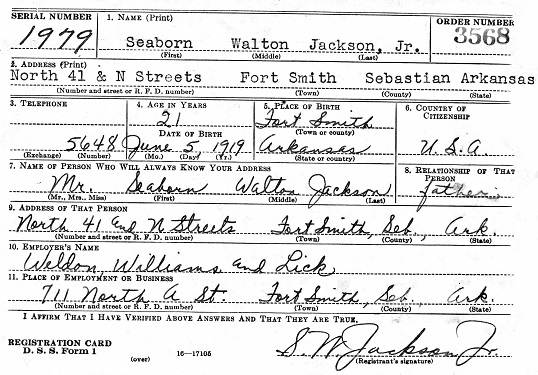 SERIAL NUMBER 1. NAME (Print) ORDER NUMBER
1979 Seaborn Walton Jackson, Jr. 3568
(First) (Middle) (Last)
2. ADDRESS (Print)
North 41 & N Streets Fort Smith Sebastian Arkansas
(Number and street or R. F. D. number) (Town) (County) (State)
3. TELEPHONE 4. AGE IN YEARS 5. PLACE OF BIRTH 6. COUNTRY OF CITIZENSHIP
21 Fort Smith
DATE OF BIRTH (Town or county)
5648 June 5 1919 Arkansas U.S.A.
(Exchange) (Number) (Mo.) (Day) (Yr.) (State or country)
7. NAME OF PERSON WHO WILL ALWAYS KNOW YOUR ADDRESS 8. RELATIONSHIP OF THAT PERSON
Mr. Seaborn Walton Jackson father
(Mr., Mrs., Miss) (First) (Middle) (Last)
9. ADDRESS OF THAT PERSON
North 41 and N Streets Fort Smith, Seb, Ark.
(Number and street or R. F. D. number) (Town) (County) (State)
10. EMPLOYER'S NAME
Weldon, Williams and Lick
11. PLACE OF EMPLOYMENT OR BUSINESS
711 North A St. Fort Smith, Seb, Ark.
(Number and street or R. F. D. number) (Town) (County) (State)
I AFFIRM THAT I HAVE VERIFIED ABOVE ANSWERS AND THAT THEY ARE TRUE.
REGISTRATION CARD
D. S. S. Form 1 (over) 16—17105 S. W. Jackson Jr.
(Registrant's signature)